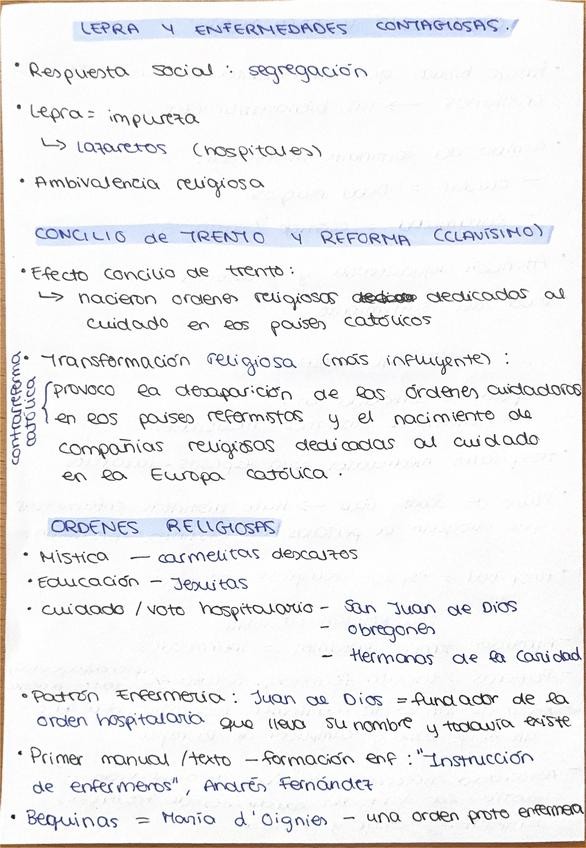 LEPRA Y ENFERMEDADES CONTAGIOSAS.
• Respuesta social: segregación
• Lepra = impureza
↳ lazaretos (hospitales)
• Ambivalencia religiosa
CONCILIO de TRENTO Y REFORMA (CLAVÍSIMO)
• Efecto concilio de trento:
↳ nacieron ordenes religiosas dedicadas al
cuidado en los países católicos
• Transformación religiosa (más influyente):
contrarreforma
católica
provoco la desaparición de las órdenes cuidadoras
en los países reformistas y el nacimiento de
compañías religiosas dedicadas al cuidado
en la Europa católica.
ORDENES RELIGIOSAS
• Mística — carmelitas descalzos
• Educación — Jesuitas
• cuidado / voto hospitalario — San Juan de Dios
— obregones
— Hermanas de la Caridad
• Patrón Enfermería: Juan de Dios = fundador de la
orden hospitalaria que lleva su nombre y todavía existe
• Primer manual / texto — formación enf: "Instrucción
de enfermeros", Andrés Fernández
• Bequinas = María d'Oignies — una orden proto enfermera